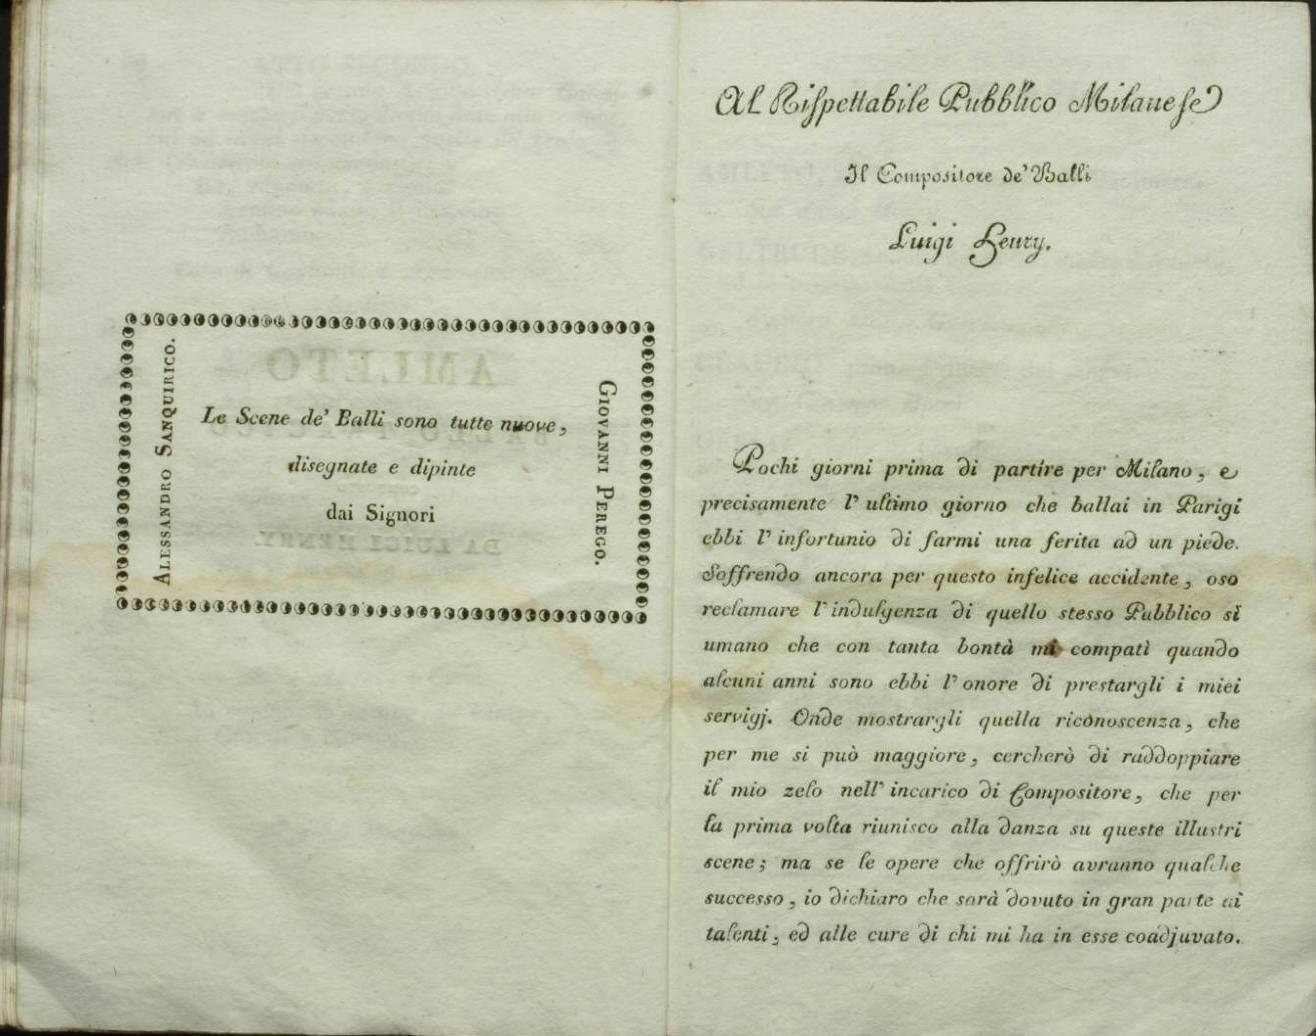 Alessandro Sanquirico.
Le Scene de' Balli sono tutte nuove,
disegnate e dipinte
dai Signori
Giovanni Perego.
Al Rispettabile Pubblico Milanese
Il Compositore de' Balli
Luigi Henry.
Pochi giorni prima di partire per Milano, e
precisamente l' ultimo giorno che ballai in Parigi
ebbi l' infortunio di farmi una ferita ad un piede.
Soffrendo ancora per questo infelice accidente, oso
reclamare l' indulgenza di quello stesso Pubblico sì
umano che con tanta bontà mi compatì quando
alcuni anni sono ebbi l' onore di prestargli i miei
servigj. Onde mostrargli quella riconoscenza, che
per me si può maggiore, cercherò di raddoppiare
il mio zelo nell' incarico di Compositore, che per
la prima volta riunisco alla danza su queste illustri
scene; ma se le opere che offrirò avranno qualche
successo, io dichiaro che sarà dovuto in gran parte ai
talenti, ed alle cure di chi mi ha in esse coadjuvato.